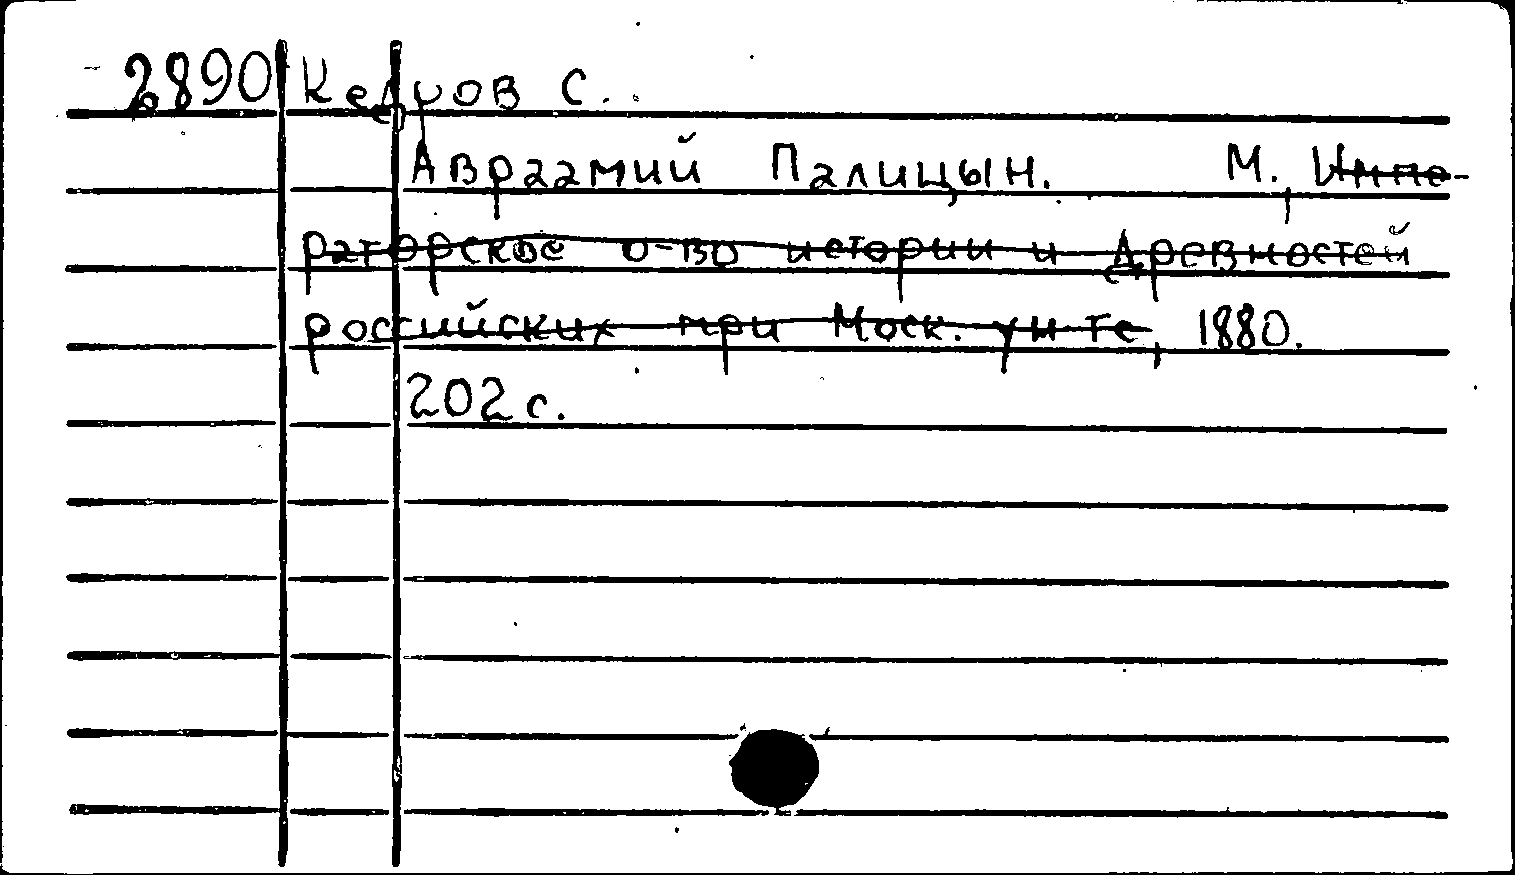 2890 Кедров С.
Авраамий Палицын. М., Импе-
раторское о-во истории и Древностей
российских при Моск. ун-те, 1880.
202 с.